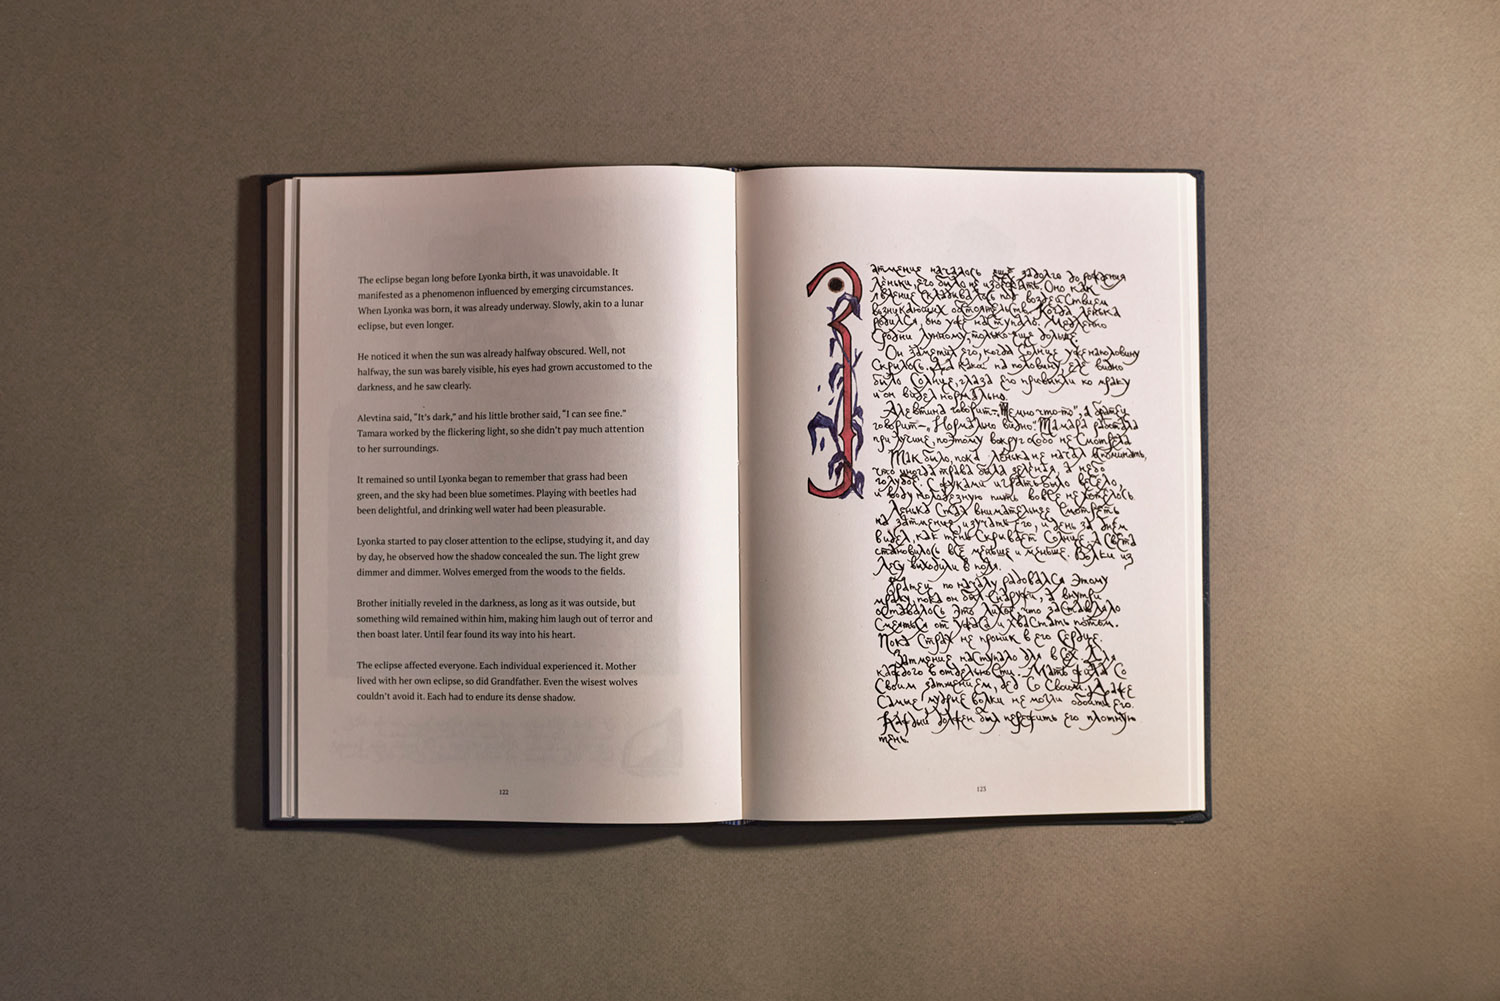 The eclipse began long before Lyonka birth, it was unavoidable. It
manifested as a phenomenon influenced by emerging circumstances.
When Lyonka was born, it was already underway. Slowly, akin to a lunar
eclipse, but even longer.
He noticed it when the sun was already halfway obscured. Well, not
halfway, the sun was barely visible, his eyes had grown accustomed to the
darkness, and he saw clearly.
Alevtina said, “It’s dark,” and his little brother said, “I can see fine.”
Tamara worked by the flickering light, so she didn’t pay much attention
to her surroundings.
It remained so until Lyonka began to remember that grass had been
green, and the sky had been blue sometimes. Playing with beetles had
been delightful, and drinking well water had been pleasurable.
Lyonka started to pay closer attention to the eclipse, studying it, and day
by day, he observed how the shadow concealed the sun. The light grew
dimmer and dimmer. Wolves emerged from the woods to the fields.
Brother initially reveled in the darkness, as long as it was outside, but
something wild remained within him, making him laugh out of terror and
then boast later. Until fear found its way into his heart.
The eclipse affected everyone. Each individual experienced it. Mother
lived with her own eclipse, so did Grandfather. Even the wisest wolves
couldn’t avoid it. Each had to endure its dense shadow.
122
Затмение началось ещё задолго до рождения
Лёньки, его было не избежать. Оно как
явление складывалось под воздействием
возникающих обстоятельств. Когда Лёнька
родился, оно уже наступало. Медленно
сродни лунному, только ещё дольше.
Он заметил его, когда Солнце уже наполовину
скрылось. Да како на половину, еле видно
было Солнце, глаза его привыкли ко мраку
и он видел нормально.
Алевтина говорит-„Темно что-то“, а братец
говорит-„Нормально видно“. Тамара работала
при лучине, поэтому вокруг особо не смотрела
Так было, пока Лёнька не начал вспоминать,
что иногда трава была зелёная, а небо
голубое. С жуками играть было весело,
и воду колодезную пить вовсе не хотелось.
Лёнька стал внимательнее смотреть
на затмение, изучать его, и день за днём
видел, как тень скривает Солнце, а света
становилось всё меньше и меньше. Волки из
лесу виходили в поля.
Братец по началу радовался этому
мраку, пока он был снаружи, а внутри
оставалось это лихое, что заставляло
смеяться от ужаса и хвастать потом.
Пока страх не проник в его сердце.
Затмение наступало для всех. Для
каждого в отдельности. Мать жила со
своим затмением, дед со своим. Даже
самые мудрые волки не могли обойти его.
Каждый должен был пережить его плотную
тень.
123